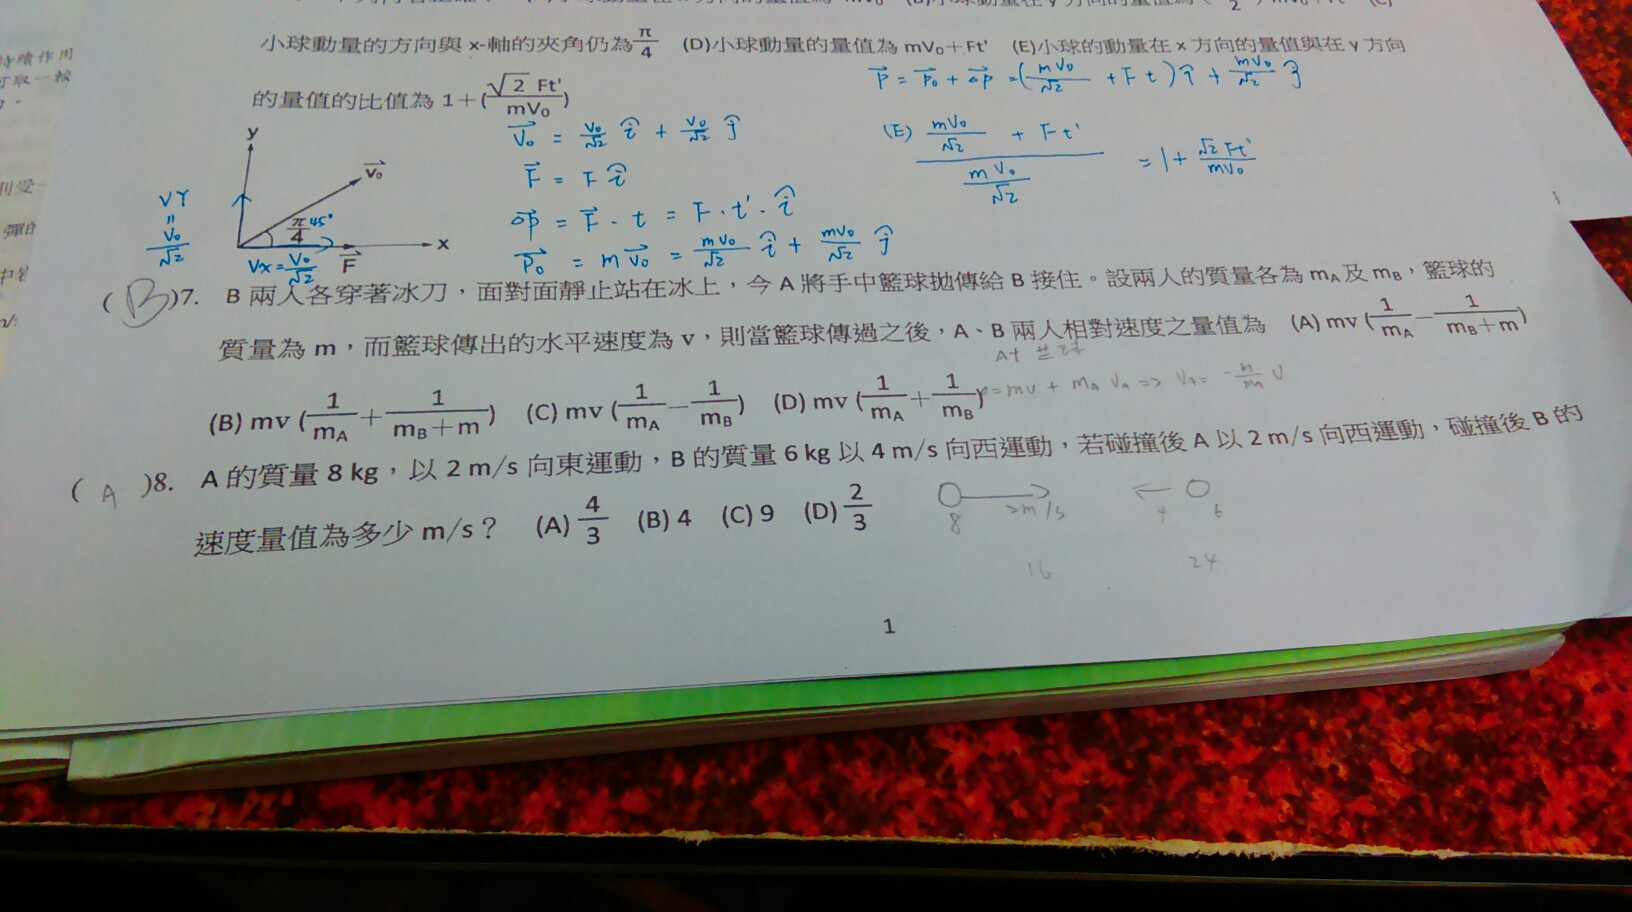 小球動量的方向與 x-軸的夾角仍為 π/4 (D)小球動量的量值為 mV₀+Ft' (E)小球的動量在 x 方向的量值與在 y 方向
的量值的比值為 1+(√2 Ft'/mV₀)
p⃗ = p⃗₀ + Δp⃗ = (mV₀/√2 + F t) î + mV₀/√2 ĵ
V⃗₀ = V₀/√2 î + V₀/√2 ĵ
F⃗ = F î
Δp⃗ = F⃗ · t = F · t' · î
p⃗₀ = m v⃗₀ = mV₀/√2 î + mV₀/√2 ĵ
(E) (mV₀/√2 + Ft')/(mV₀/√2) = 1 + √2 Ft'/mV₀
y
v⃗₀
π/4 45°
x
F⃗
VY = V₀/√2
Vx = V₀/√2
( B )7. B 兩人各穿著冰刀，面對面靜止站在冰上，今 A 將手中籃球拋傳給 B 接住。設兩人的質量各為 mA 及 mB，籃球的
質量為 m，而籃球傳出的水平速度為 v，則當籃球傳過之後，A、B 兩人相對速度之量值為 (A) mv (1/mA − 1/(mB+m))
(B) mv (1/mA + 1/(mB+m)) (C) mv (1/mA − 1/mB) (D) mv (1/mA + 1/mB)
( A )8. A 的質量 8 kg，以 2 m/s 向東運動，B 的質量 6 kg 以 4 m/s 向西運動，若碰撞後 A 以 2 m/s 向西運動，碰撞後 B 的
速度量值為多少 m/s？ (A) 4/3 (B) 4 (C) 9 (D) 2/3
8 2m/s 4 6
16 24
1